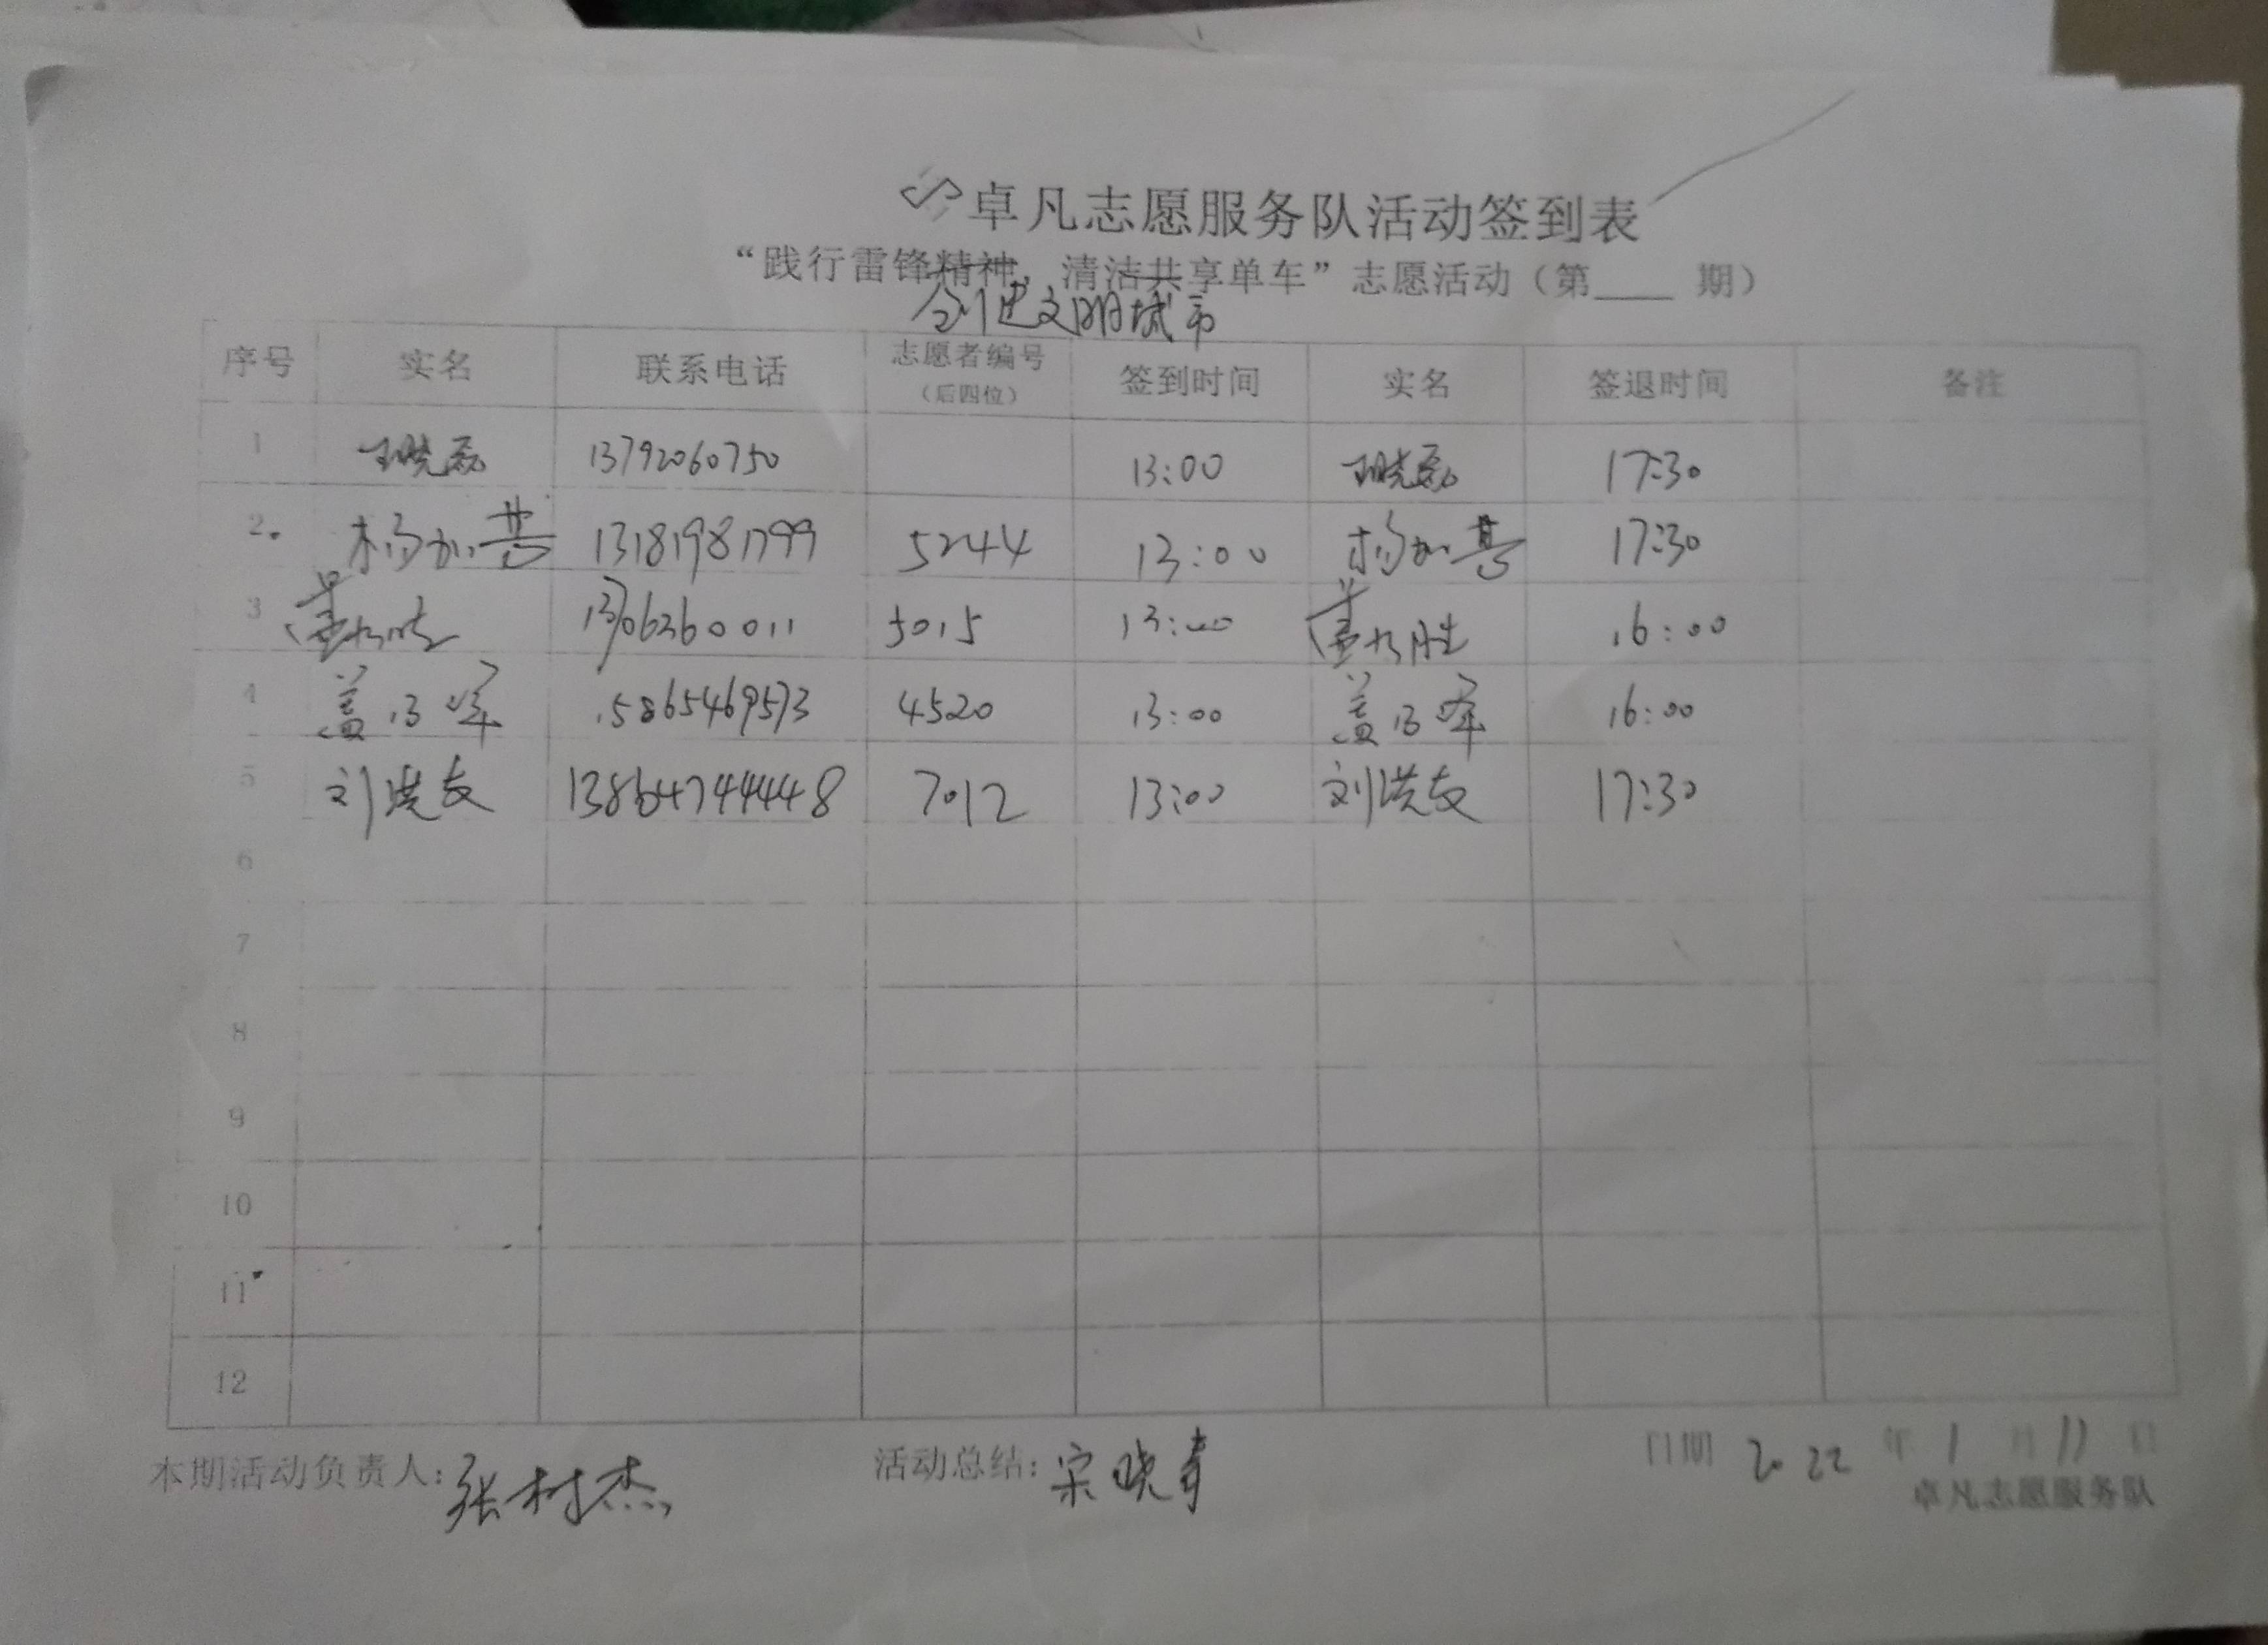 卓凡志愿服务队活动签到表
“践行雷锋精神，清洁共享单车”志愿活动（第____ 期）
创建文明城市
序号 实名 联系电话 志愿者编号（后四位） 签到时间 实名 签退时间 备注
1 王晓磊 13792060750 13:00 王晓磊 17:30
2 杨加普 13181981799 5244 13:00 杨加普 17:30
3 13706360011 5015 13:00 16:00
4 盖乃军 15865469573 4520 13:00 盖乃军 16:00
5 刘洪友 13864744448 7012 13:00 刘洪友 17:30
6
7
8
9
10
11
12
本期活动负责人：张树杰 活动总结：宋晓青 日期 2022 年 1 月 11 日
卓凡志愿服务队